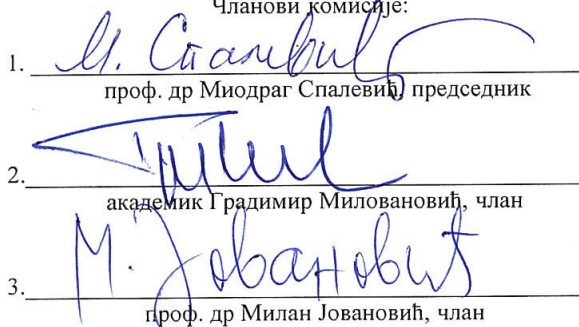 Чланови комисије:
1. М. Спалевић
проф. др Миодраг Спалевић, председник
2.
академик Градимир Миловановић, члан
3. М. Јовановић
проф. др Милан Јовановић, члан